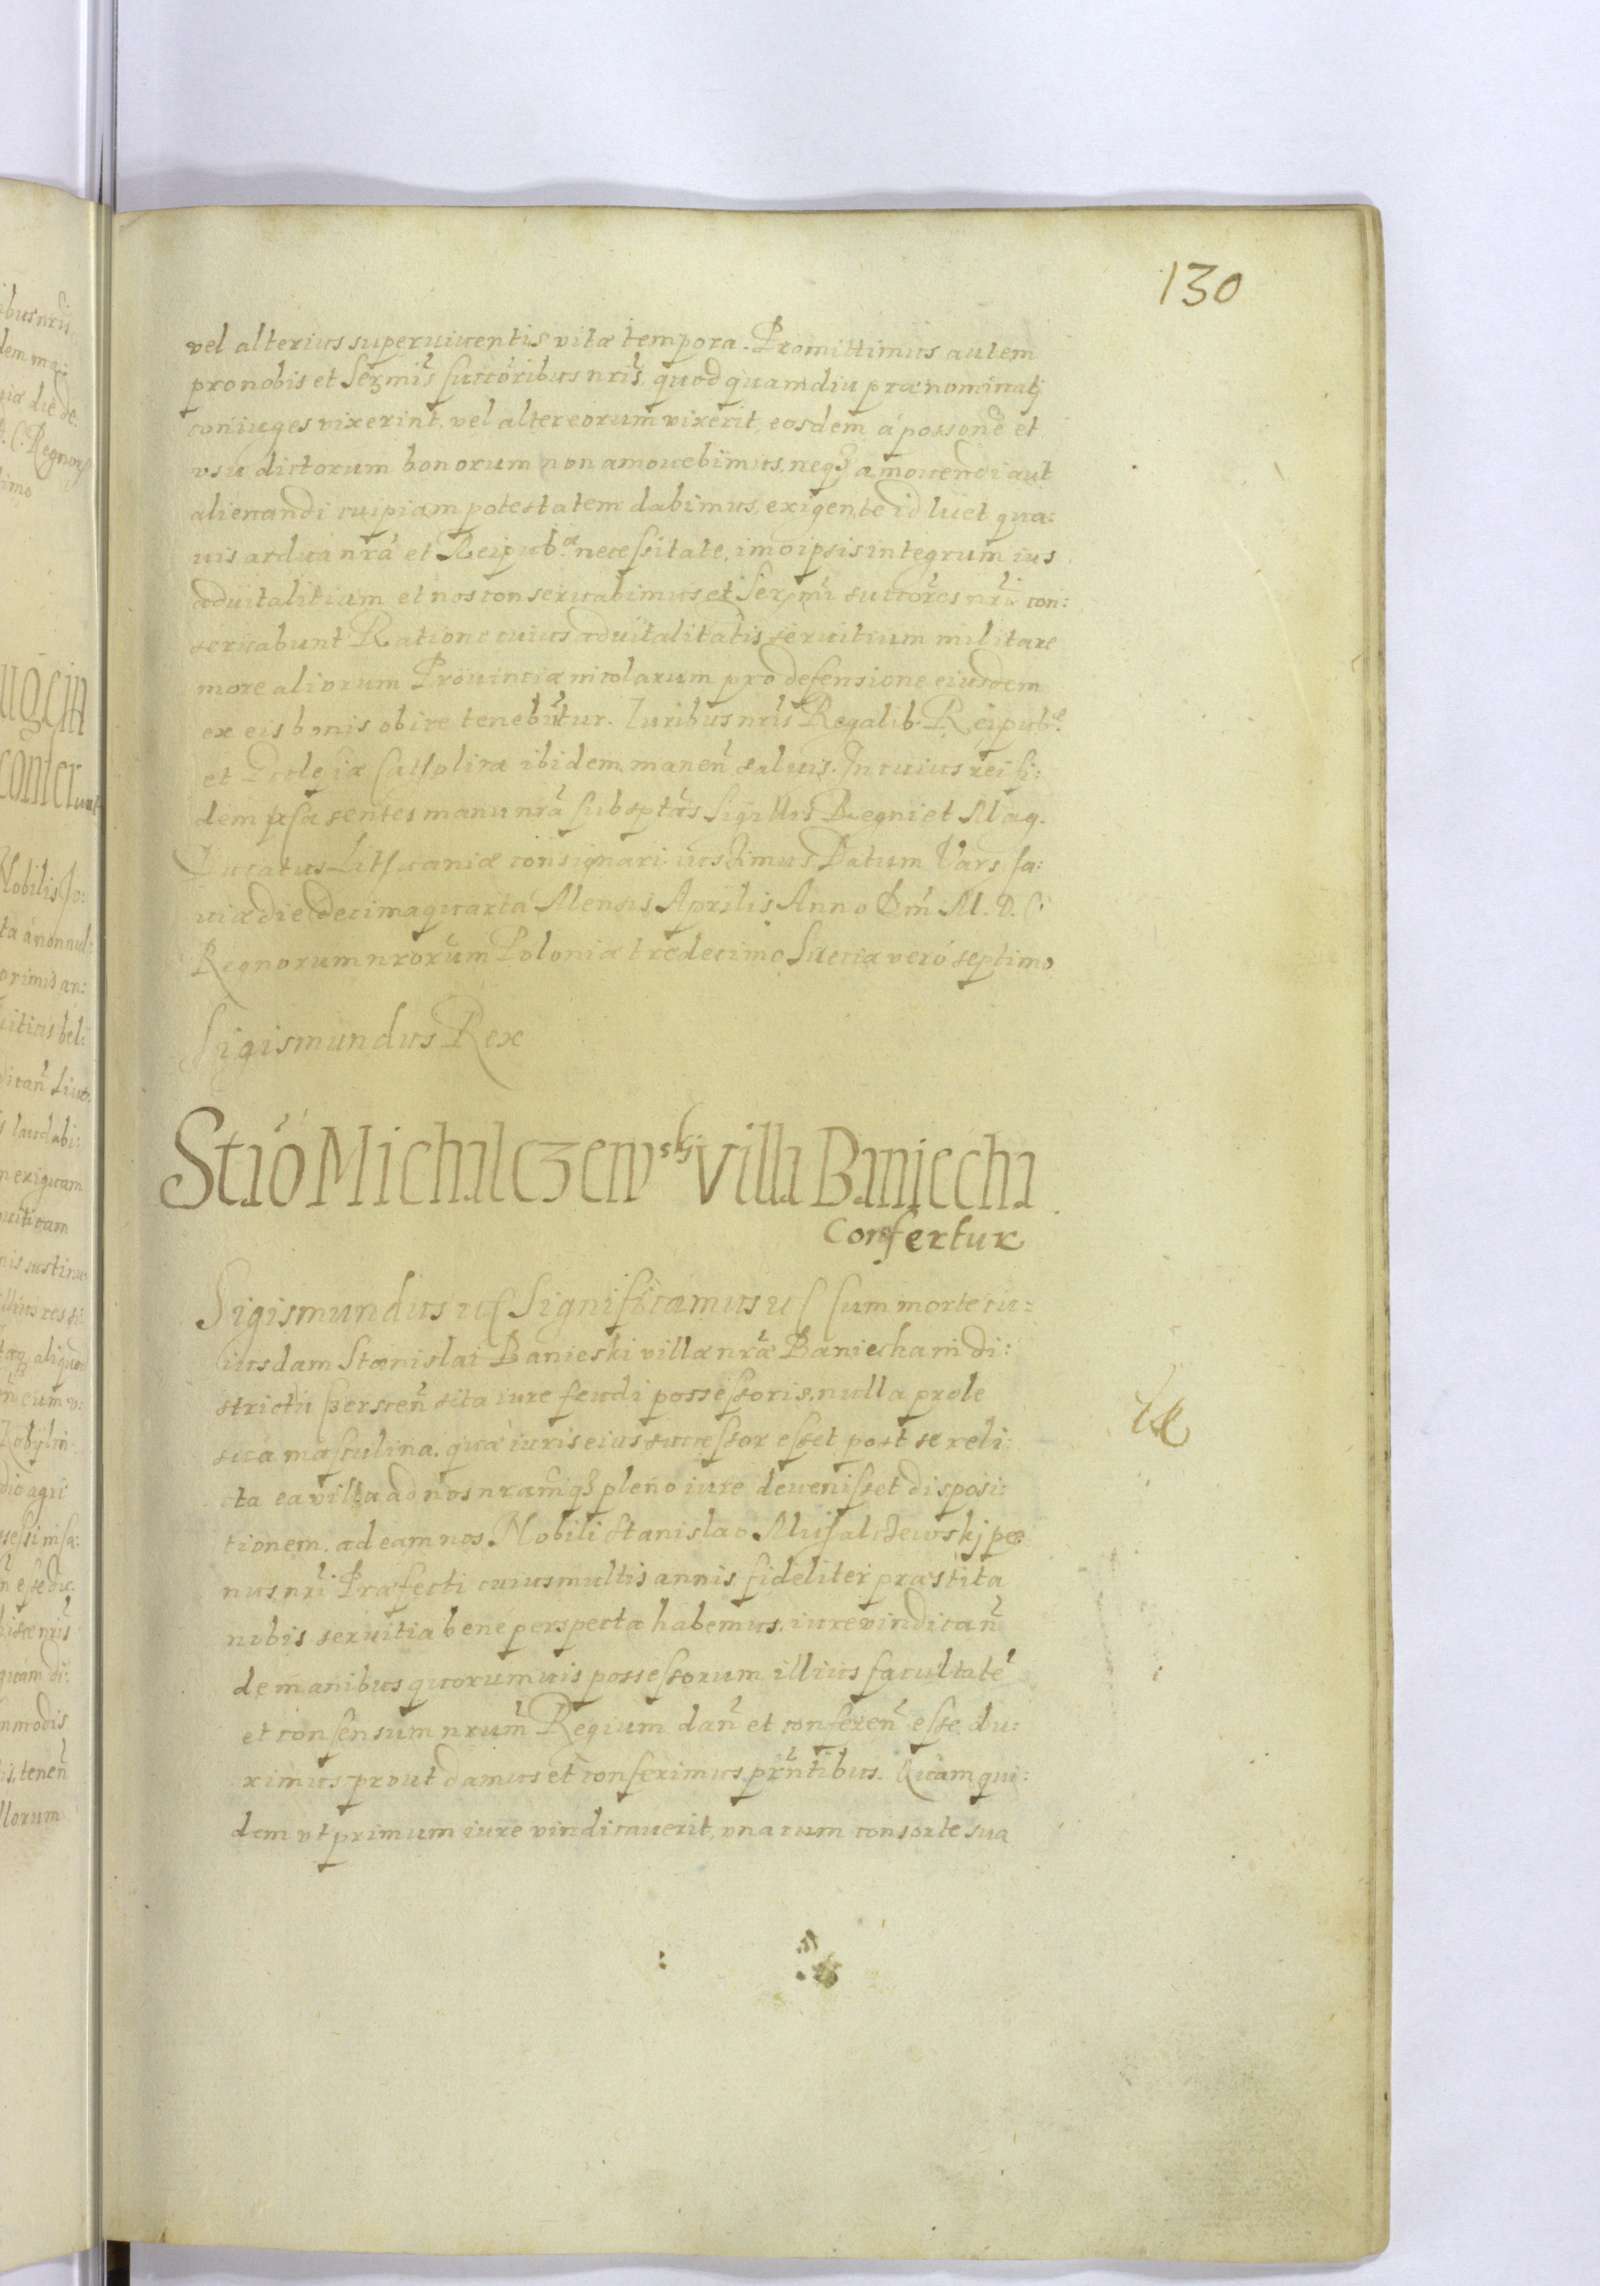 130
vel alterius superuiuentis vitæ tempora. Promittimus autem
pro nobis et Sermis succoribus nris, quod quamdiu prænominatj
coniuges vixerint, vel alter eorum vixerit, eosdem á possone et
vsu dictorum bonorum non amouebimus, neq3 amouendi aut
alienandi cuipiam potestatem dabimus, exigente id licet qua:
uis ardua nrá et Reipubcæ necessitate, imo ipsis integrum ius
aduitalitium et nos conseruabimus et Sermi succores nri con:
seruabunt Ratione cuius aduitalitatis seruitium militare
more aliorum Prouinciæ incolarum pro defensione eiusdem
ex eis bonis obire tenebutur. Iuribus nris Regalib. Reipub.
et Ecclesiæ Catholicæ ibidem manen saluis. In cuius rei fi:
dem præsentes manu nrá subsptas Sigillis Regni et Mag.
Ducatus Lithuaniæ consignari iussimus Datum Varssa:
uiæ die decimaquarta Mensis Aprilis Anno Dni M.D.C.
Regnorum nrorum Poloniæ tredecimo Sueciæ veró septimo
Sigismundus Rex
Stão Michalczewskj Villa Baniecha
Confertur
Sigismundus uc Significamus uc Cum morte cu:
iusdam Stanislai Banieski villæ nræ Baniecha in di:
strictu Czerscen sita iure feudi possessoris, nulla prole
sua masculina, quæ iuris eius successor esset post se reli:
cta ea villa ad nos nramq3 pleno iure deuenisset disposi:
tionem, ad eam nos Nobili Stanislao Michalczewskj pe
nus nri Præfecti cuius multis annis fideliter præstita
nobis seruitia bene perspecta habemus, iure vindican
de manibus quorumuis possessorum illius facultaté
et consensum nrum Regium dan et conferen esse du:
ximus prout damus et conferimus prntibus. Quam qui:
dem vt primum iure vindicauerit, vna cum consorte sua